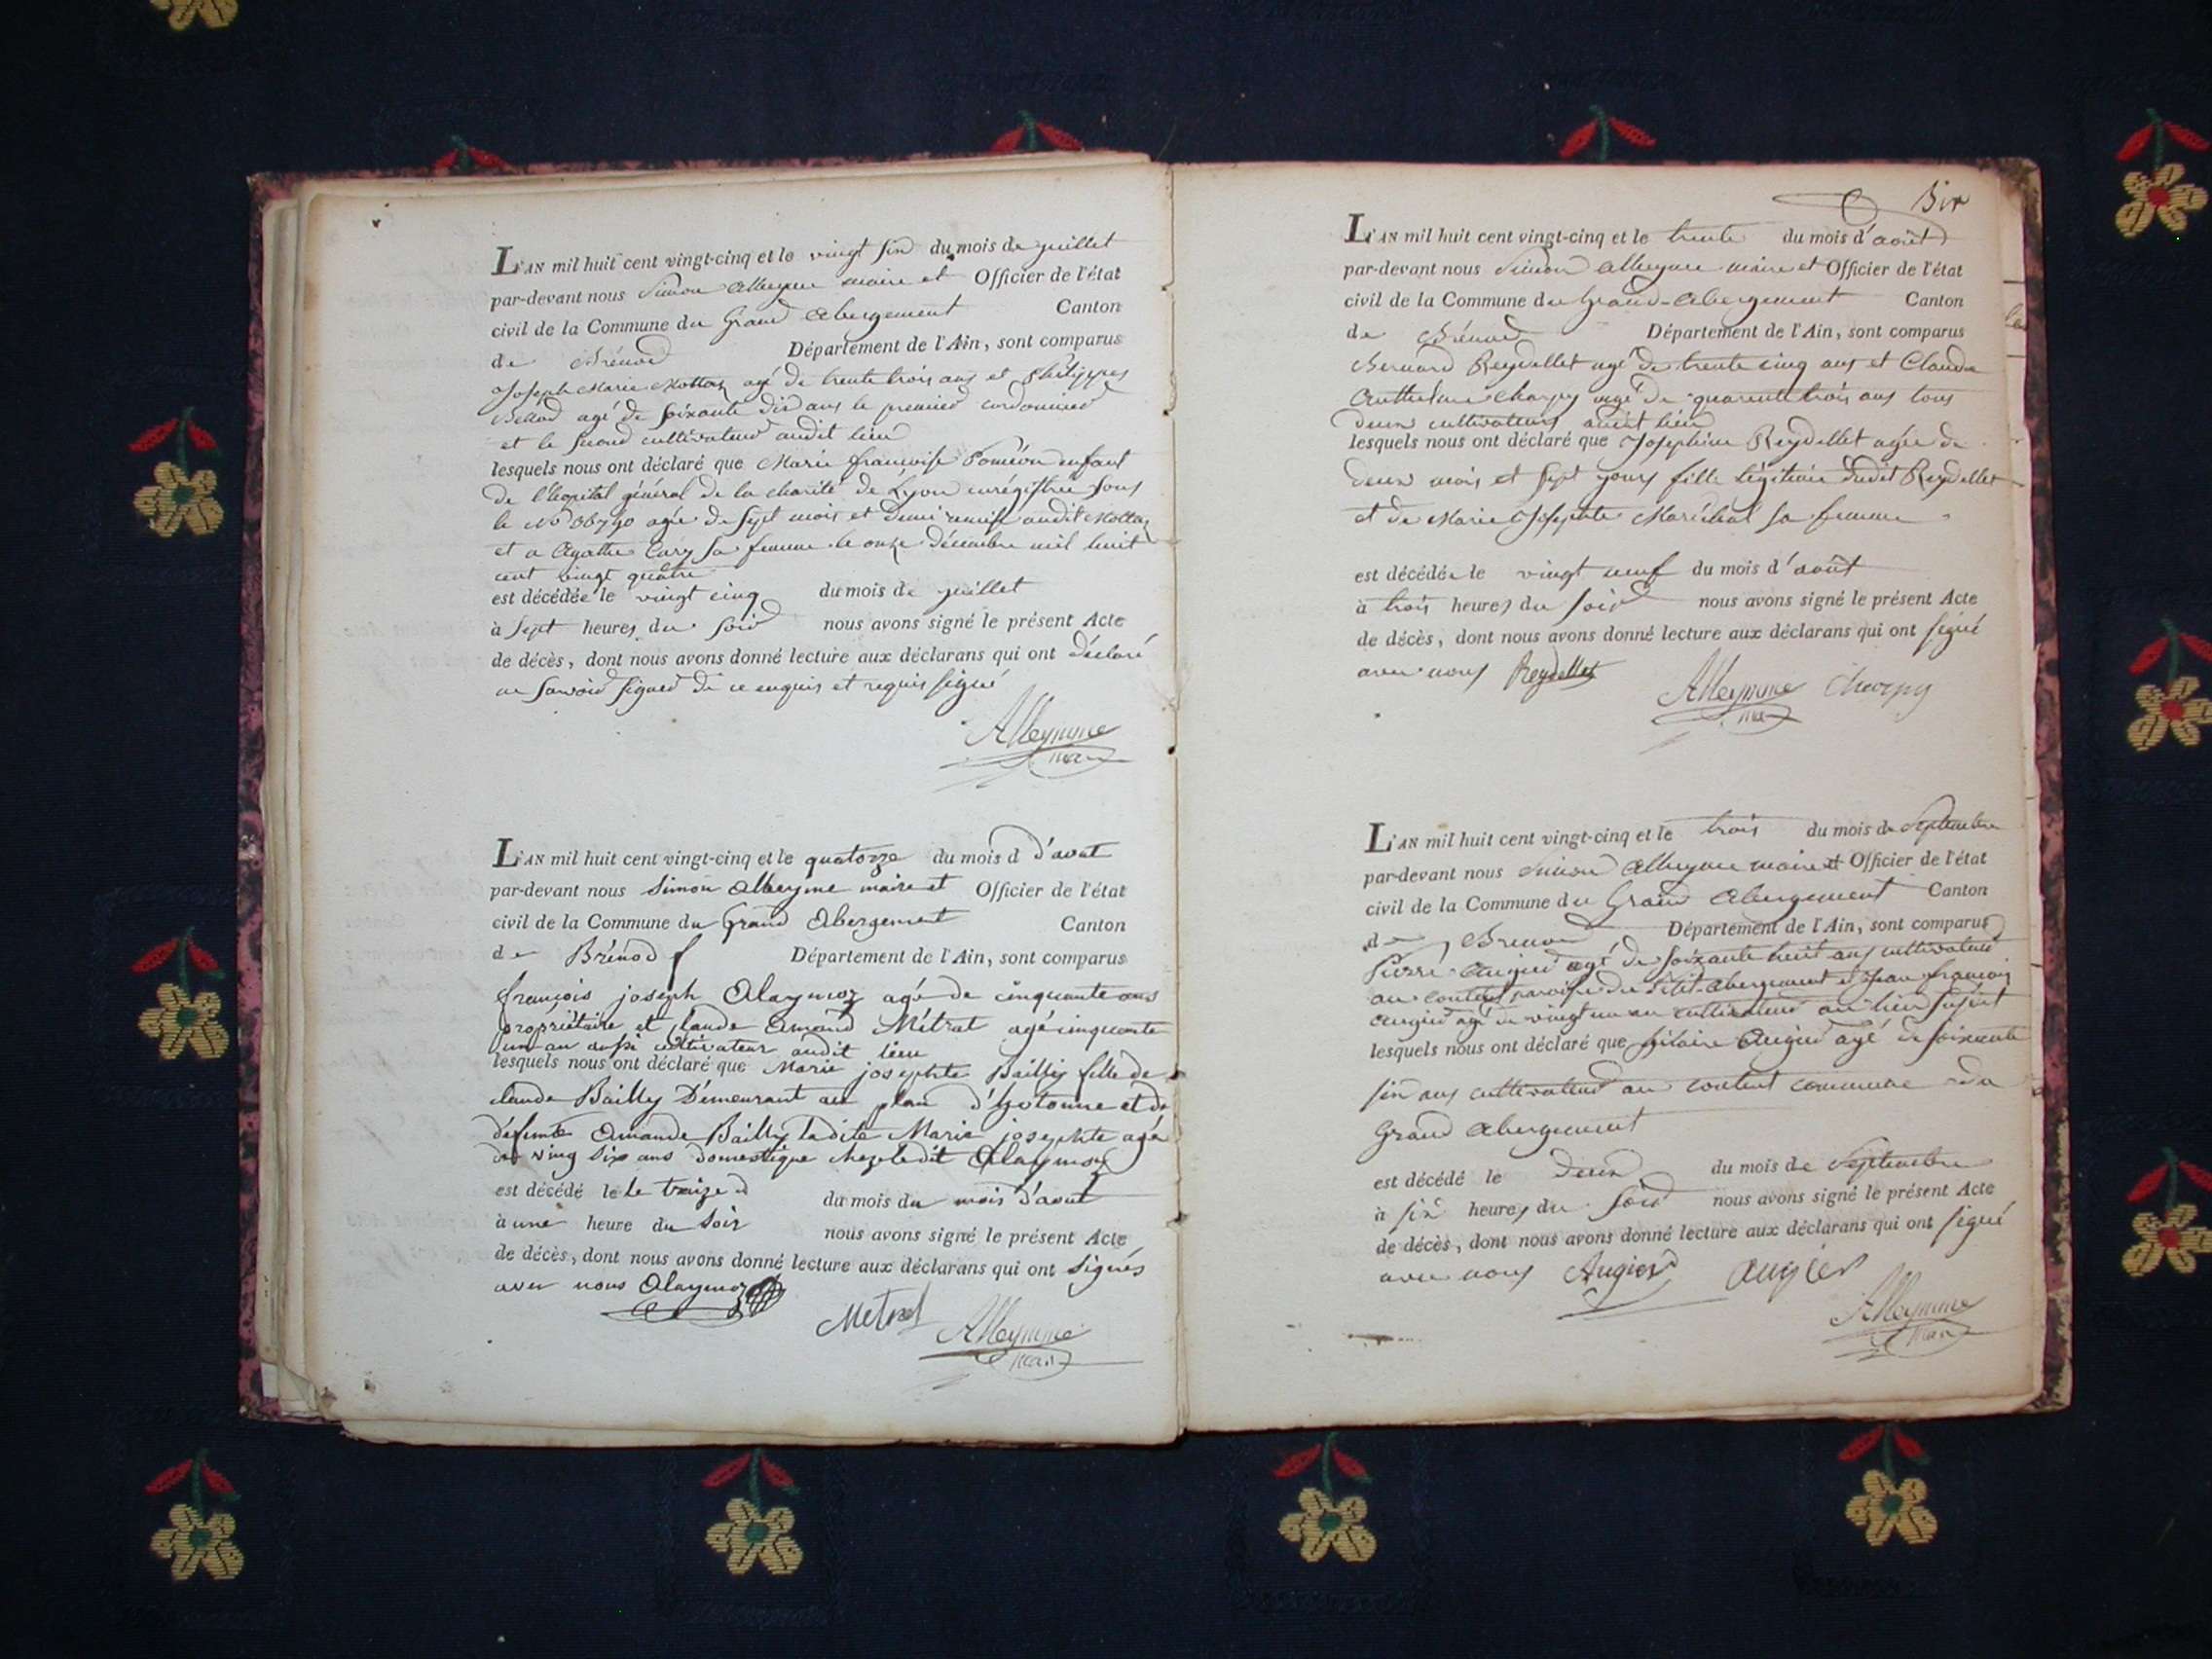 L'AN mil huit cent vingt-cinq et le vingt six du mois de juillet
par-devant nous Simon Alleyme maire et Officier de l'état
civil de la Commune du Grand Abergement Canton
de Brénod Département de l'Ain, sont comparus
Joseph Marie Mottaz agé de trente trois ans et Philippes
agé de soixante dix ans le premier cordonnier
et le second cultivateur audit lieu
lesquels nous ont déclaré que Marie françoise Poméon enfant
de l'hopital général de la charité de Lyon enrégistrée sous
le No agée de sept mois et demi remise audit Mottaz
et a Agathe sa femme le onze décembre mil huit
cent vingt quatre
est décédée le vingt cinq du mois de juillet
à sept heures du soir nous avons signé le présent Acte
de décès, dont nous avons donné lecture aux déclarans qui ont déclaré
ne savoir signer de ce enquis et requis signé
Alleyme
maire
L'AN mil huit cent vingt-cinq et le quatorze du mois d d'avat
par-devant nous Simon Alleyme maire et Officier de l'état
civil de la Commune du Grand Abergement Canton
de Brénod Département de l'Ain, sont comparus
françois joseph Alaymoz agé de cinquante ans
propriétaire et Claude Amand Métrat agé cinquante
un an aussi cultivateur audit lieu
lesquels nous ont déclaré que Marie josephte Bailly fille de
claude Bailly Demeurant au plan d'hotonne et de
défunte Amande Bailly ladite Marie josephte agé
de ving six ans domestique chez ledit Alaymoz
est décédé le le traize du mois du mois d'avat
à une heure du soir nous avons signé le présent Acte
de décès, dont nous avons donné lecture aux déclarans qui ont signés
avec nous Alaymoz
Metrat Alleyme
maire
Six
L'AN mil huit cent vingt-cinq et le trente du mois d'août
par-devant nous Simon Alleyme maire et Officier de l'état
civil de la Commune du Grand-Abergement Canton
de Brénod Département de l'Ain, sont comparus
Bernard Reydellet agé de trente cinq ans et Claude
Anthelme Charpy agé de quarente trois ans tous
deux cultivateurs audit lieu
lesquels nous ont déclaré que Josephine Reydellet agée de
deux mois et sept jours fille légitime dudit Reydellet
et de Marie Josephte Maréchal sa femme
est décédée le vingt neuf du mois d'août
à trois heures du soir nous avons signé le présent Acte
de décès, dont nous avons donné lecture aux déclarans qui ont signé
avec nous Reydellet
Alleyme Charpy
maire
L'AN mil huit cent vingt-cinq et le trois du mois de Septembre
par-devant nous Simon Alleyme maire et Officier de l'état
civil de la Commune du Grand Abergement Canton
de Brenod Département de l'Ain, sont comparus
Pierre Augier agé de soixante huit ans cultivateur
au Content paroisse du Petit-Abergement et Jean françois
Augier agé de vingt un an cultivateur au lieu
lesquels nous ont déclaré que hilaire Augier agé de soixante
six ans cultivateur au content commune du
Grand Abergement
est décédé le deux du mois de Septembre
à six heures du soir nous avons signé le présent Acte
de décès, dont nous avons donné lecture aux déclarans qui ont signé
avec nous Augier augier
Alleyme
maire